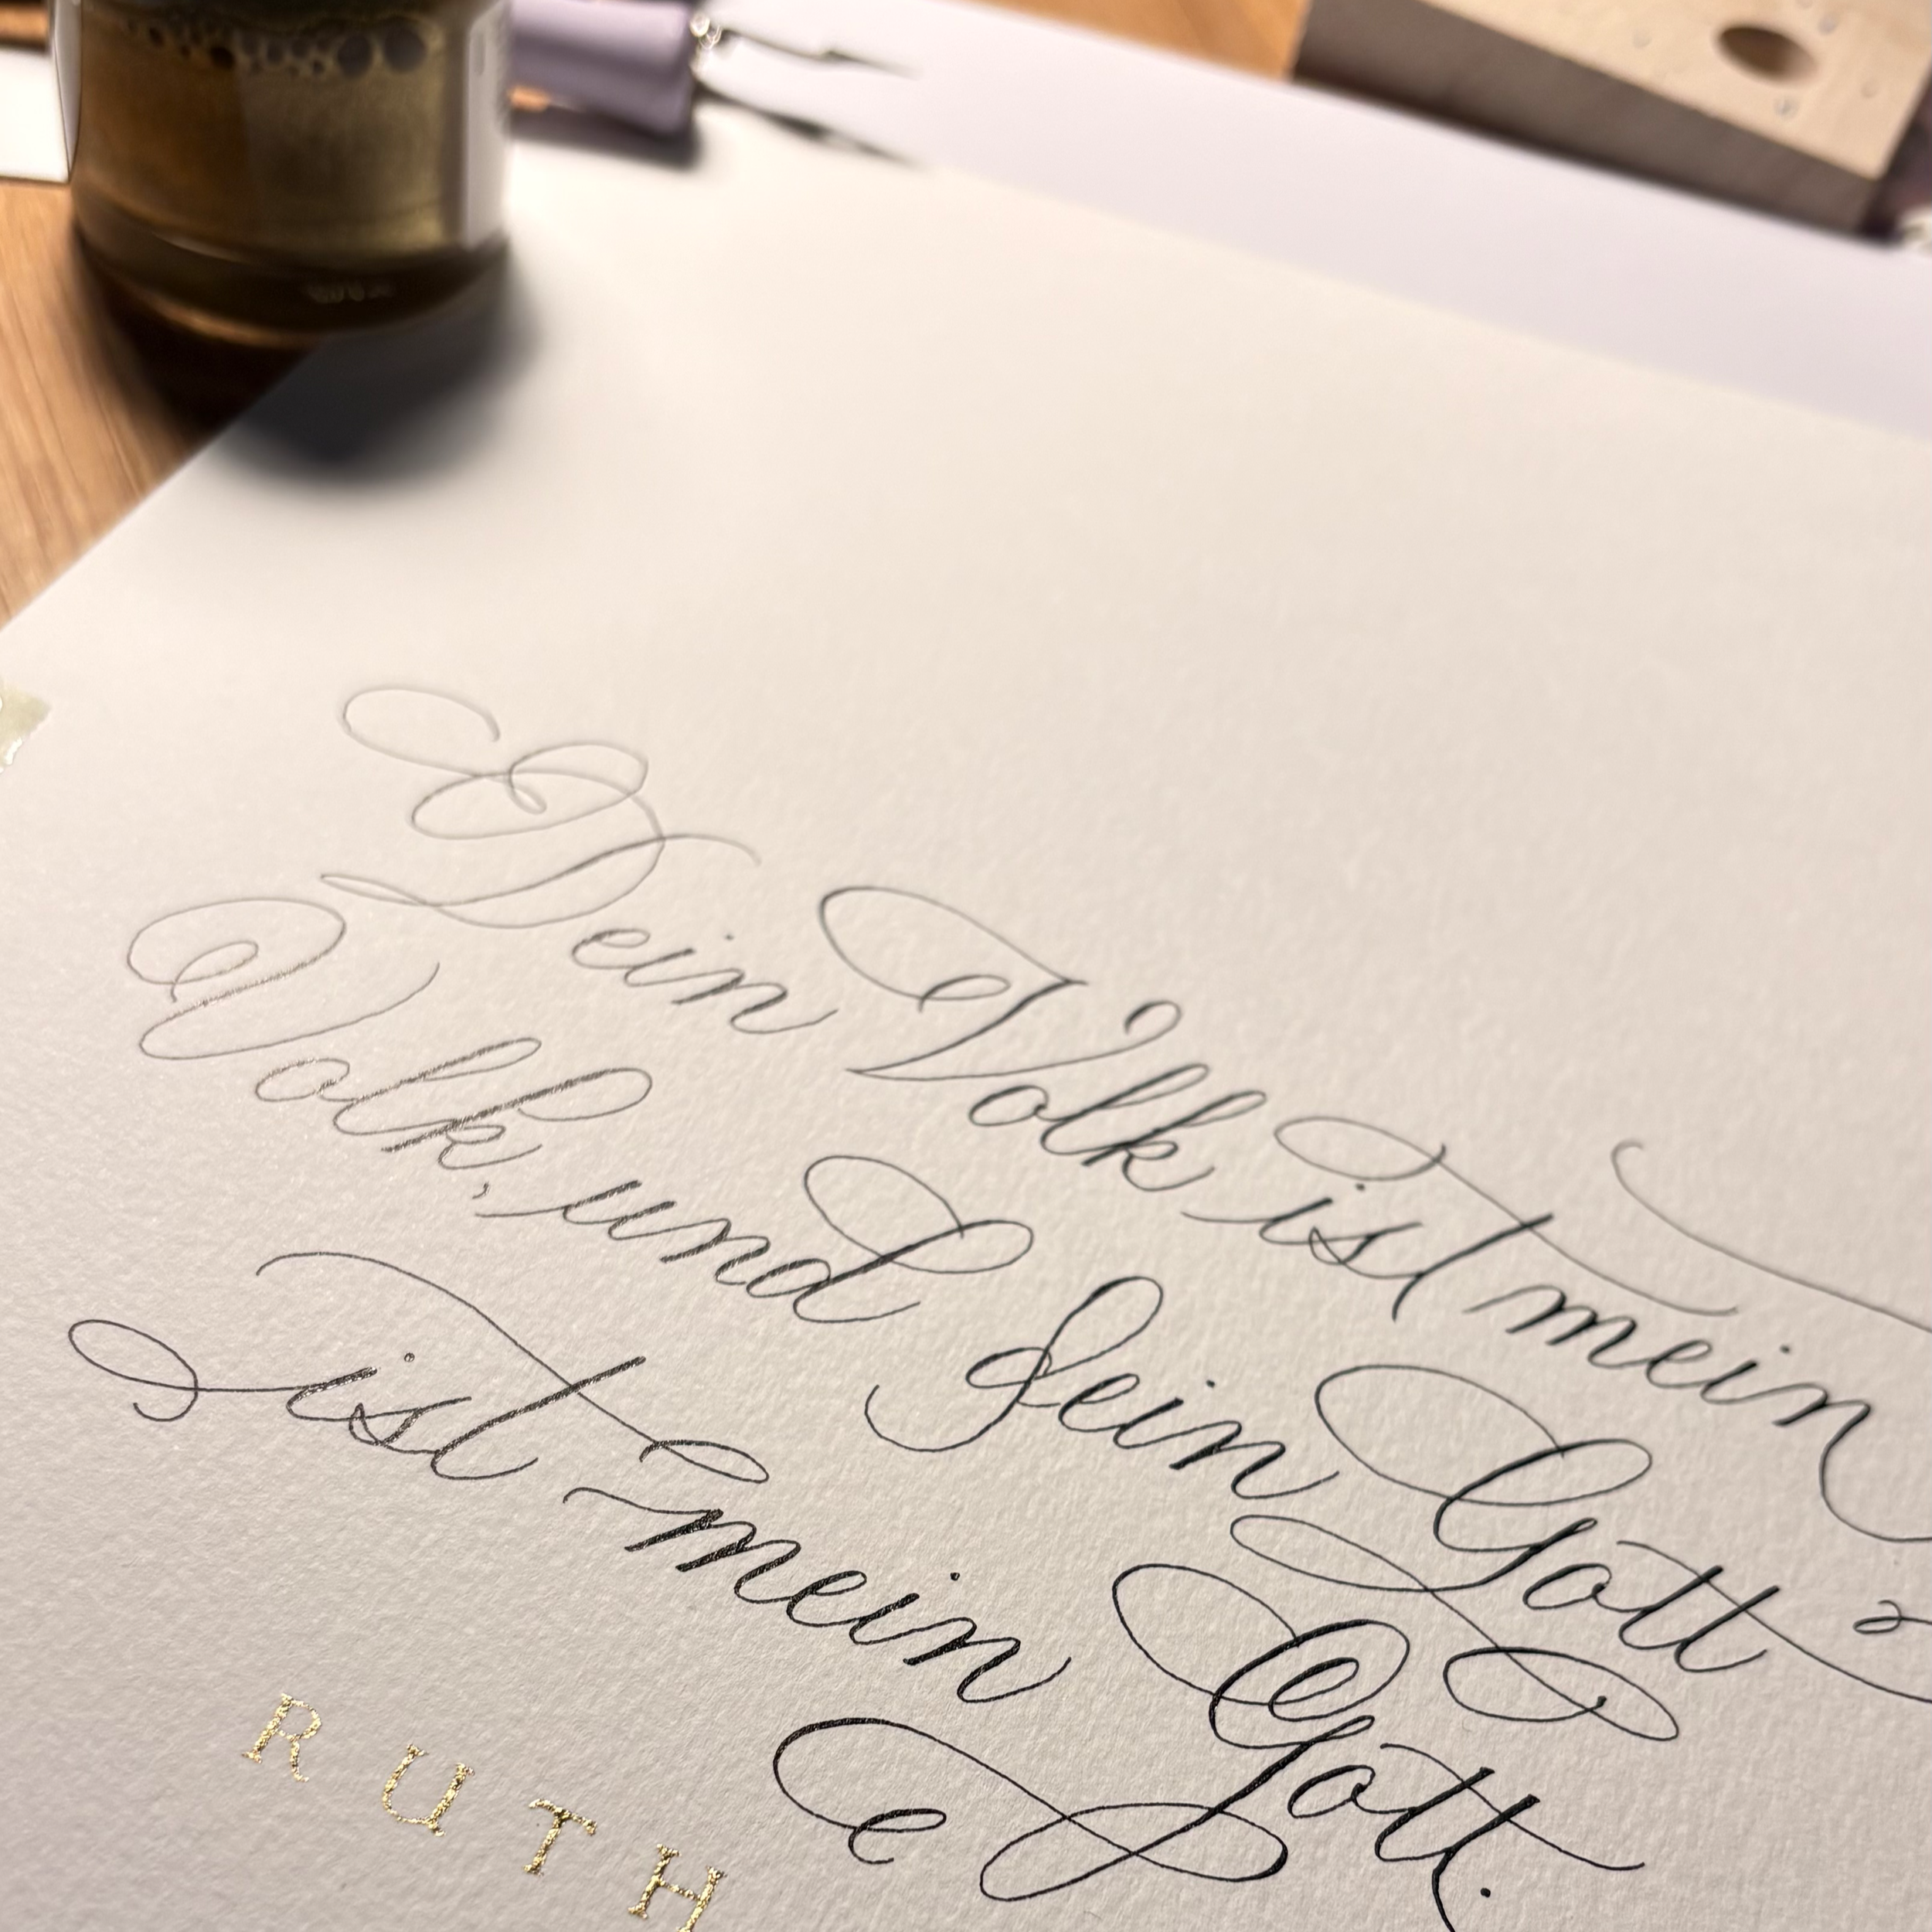 Dein Volk ist mein
Volk, und dein Gott
ist mein Gott.
RUTH